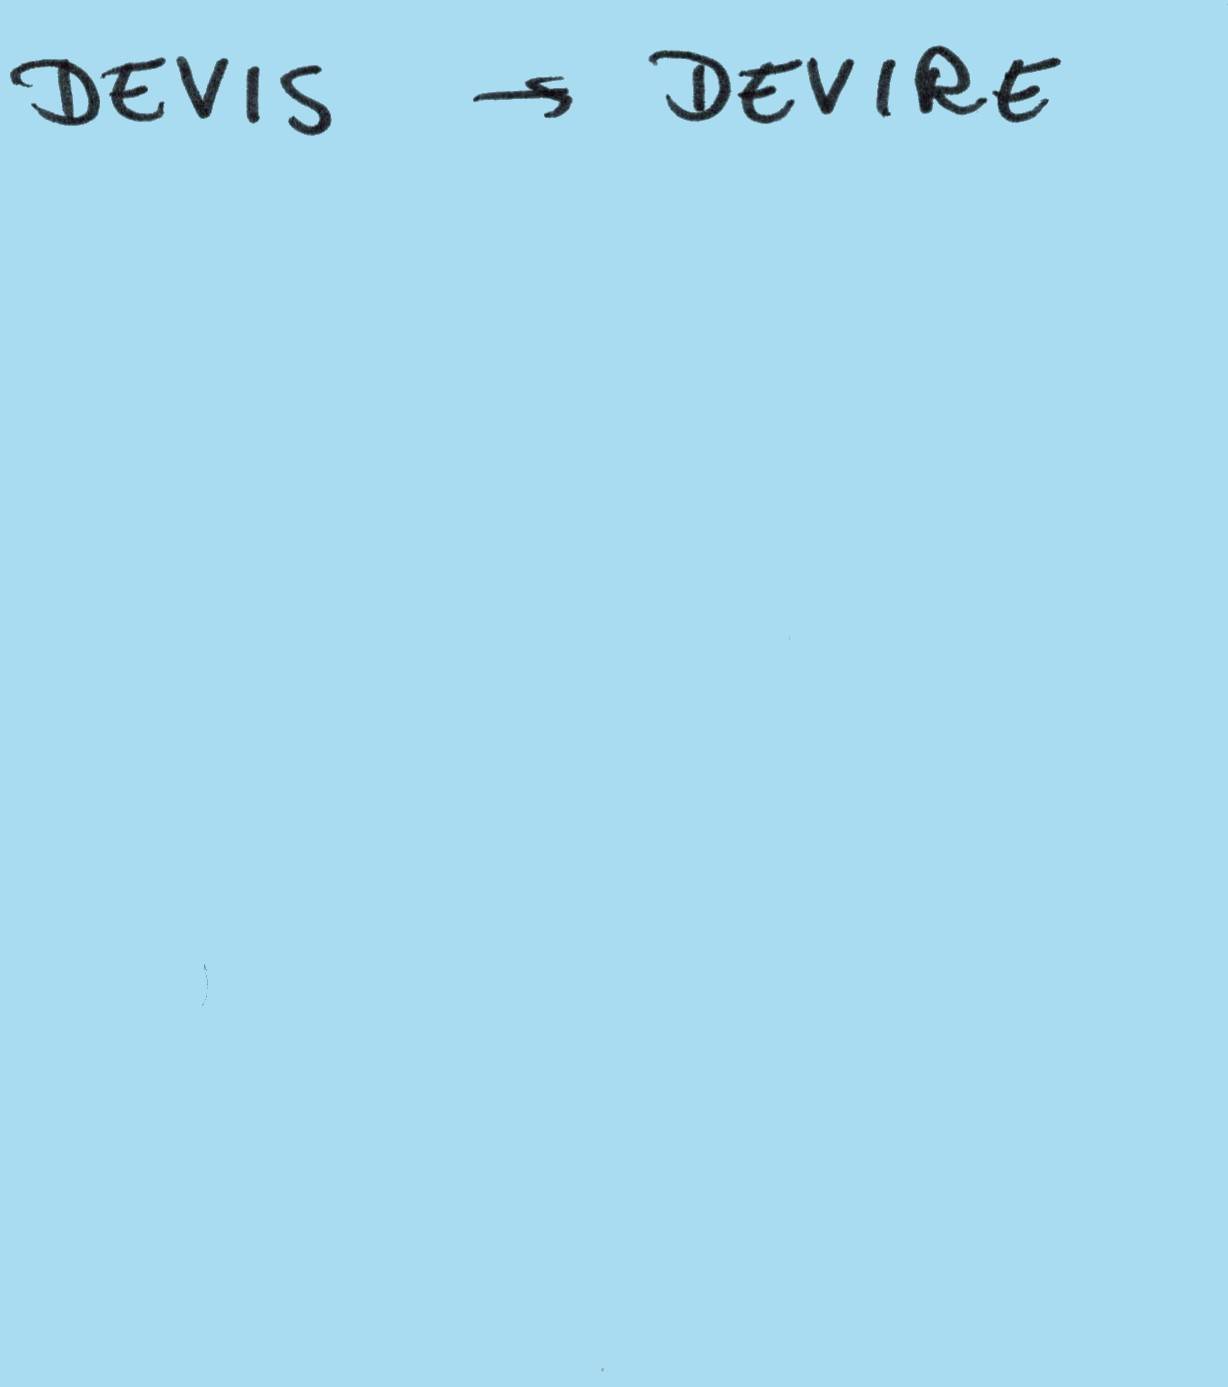 DEVIS → DEVIRE